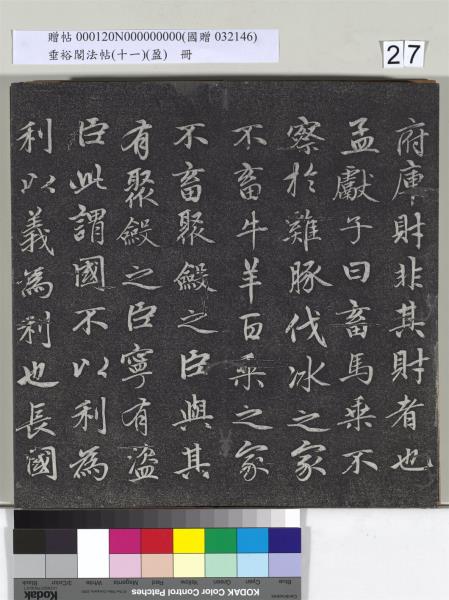 贈帖 000120N000000000(國贈 032146)
垂裕閣法帖(十一)(盈) 冊
27
府庫財非其財者也
孟獻子曰畜馬乘不
察於雞豚伐冰之家
不畜牛羊百乘之家
不畜聚斂之臣與其
有聚斂之臣寧有盜
臣此謂國不以利為
利以義為利也長國
Blue
Cyan
Green
Yellow
Red
Magenta
White
3/Color
Black
KODAK Color Control Patches
Kodak